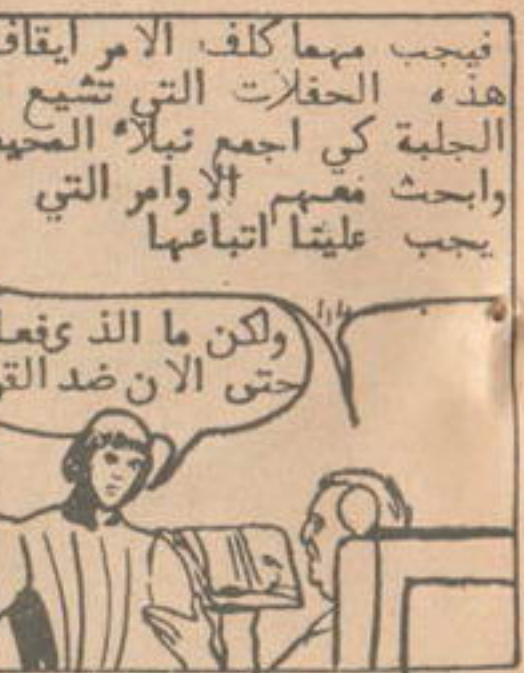 فيجب مهما كلف الامر ايقاف
هذه الحفلات التي تشيع
الجلبة كي اجمع نبلاء المحيط
وابحث معهم الاوامر التي
يجب علينا اتباعها
ولكن ما الذي فعل
حتى الان ضد